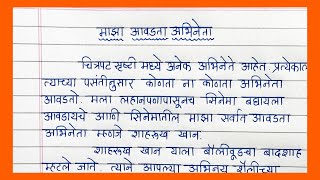 माझा आवडता अभिनेता
चित्रपट सृष्टी मध्ये अनेक अभिनेते आहेत प्रत्येकाल
त्याच्या पसंतीनुसार कोणता ना कोणता अभिनेता
आवडतो. मला लहानपणापासूनच सिनेमा बघायला
आवडायचे आणि सिनेमातील माझा सर्वात आवडता
अभिनेता म्हणजे शाहरूख खान.
शाहरूख खान याला बॉलीवूडचा बादशाह
म्हटले जाते. त्याने आपल्या अभिनय शैलीच्या